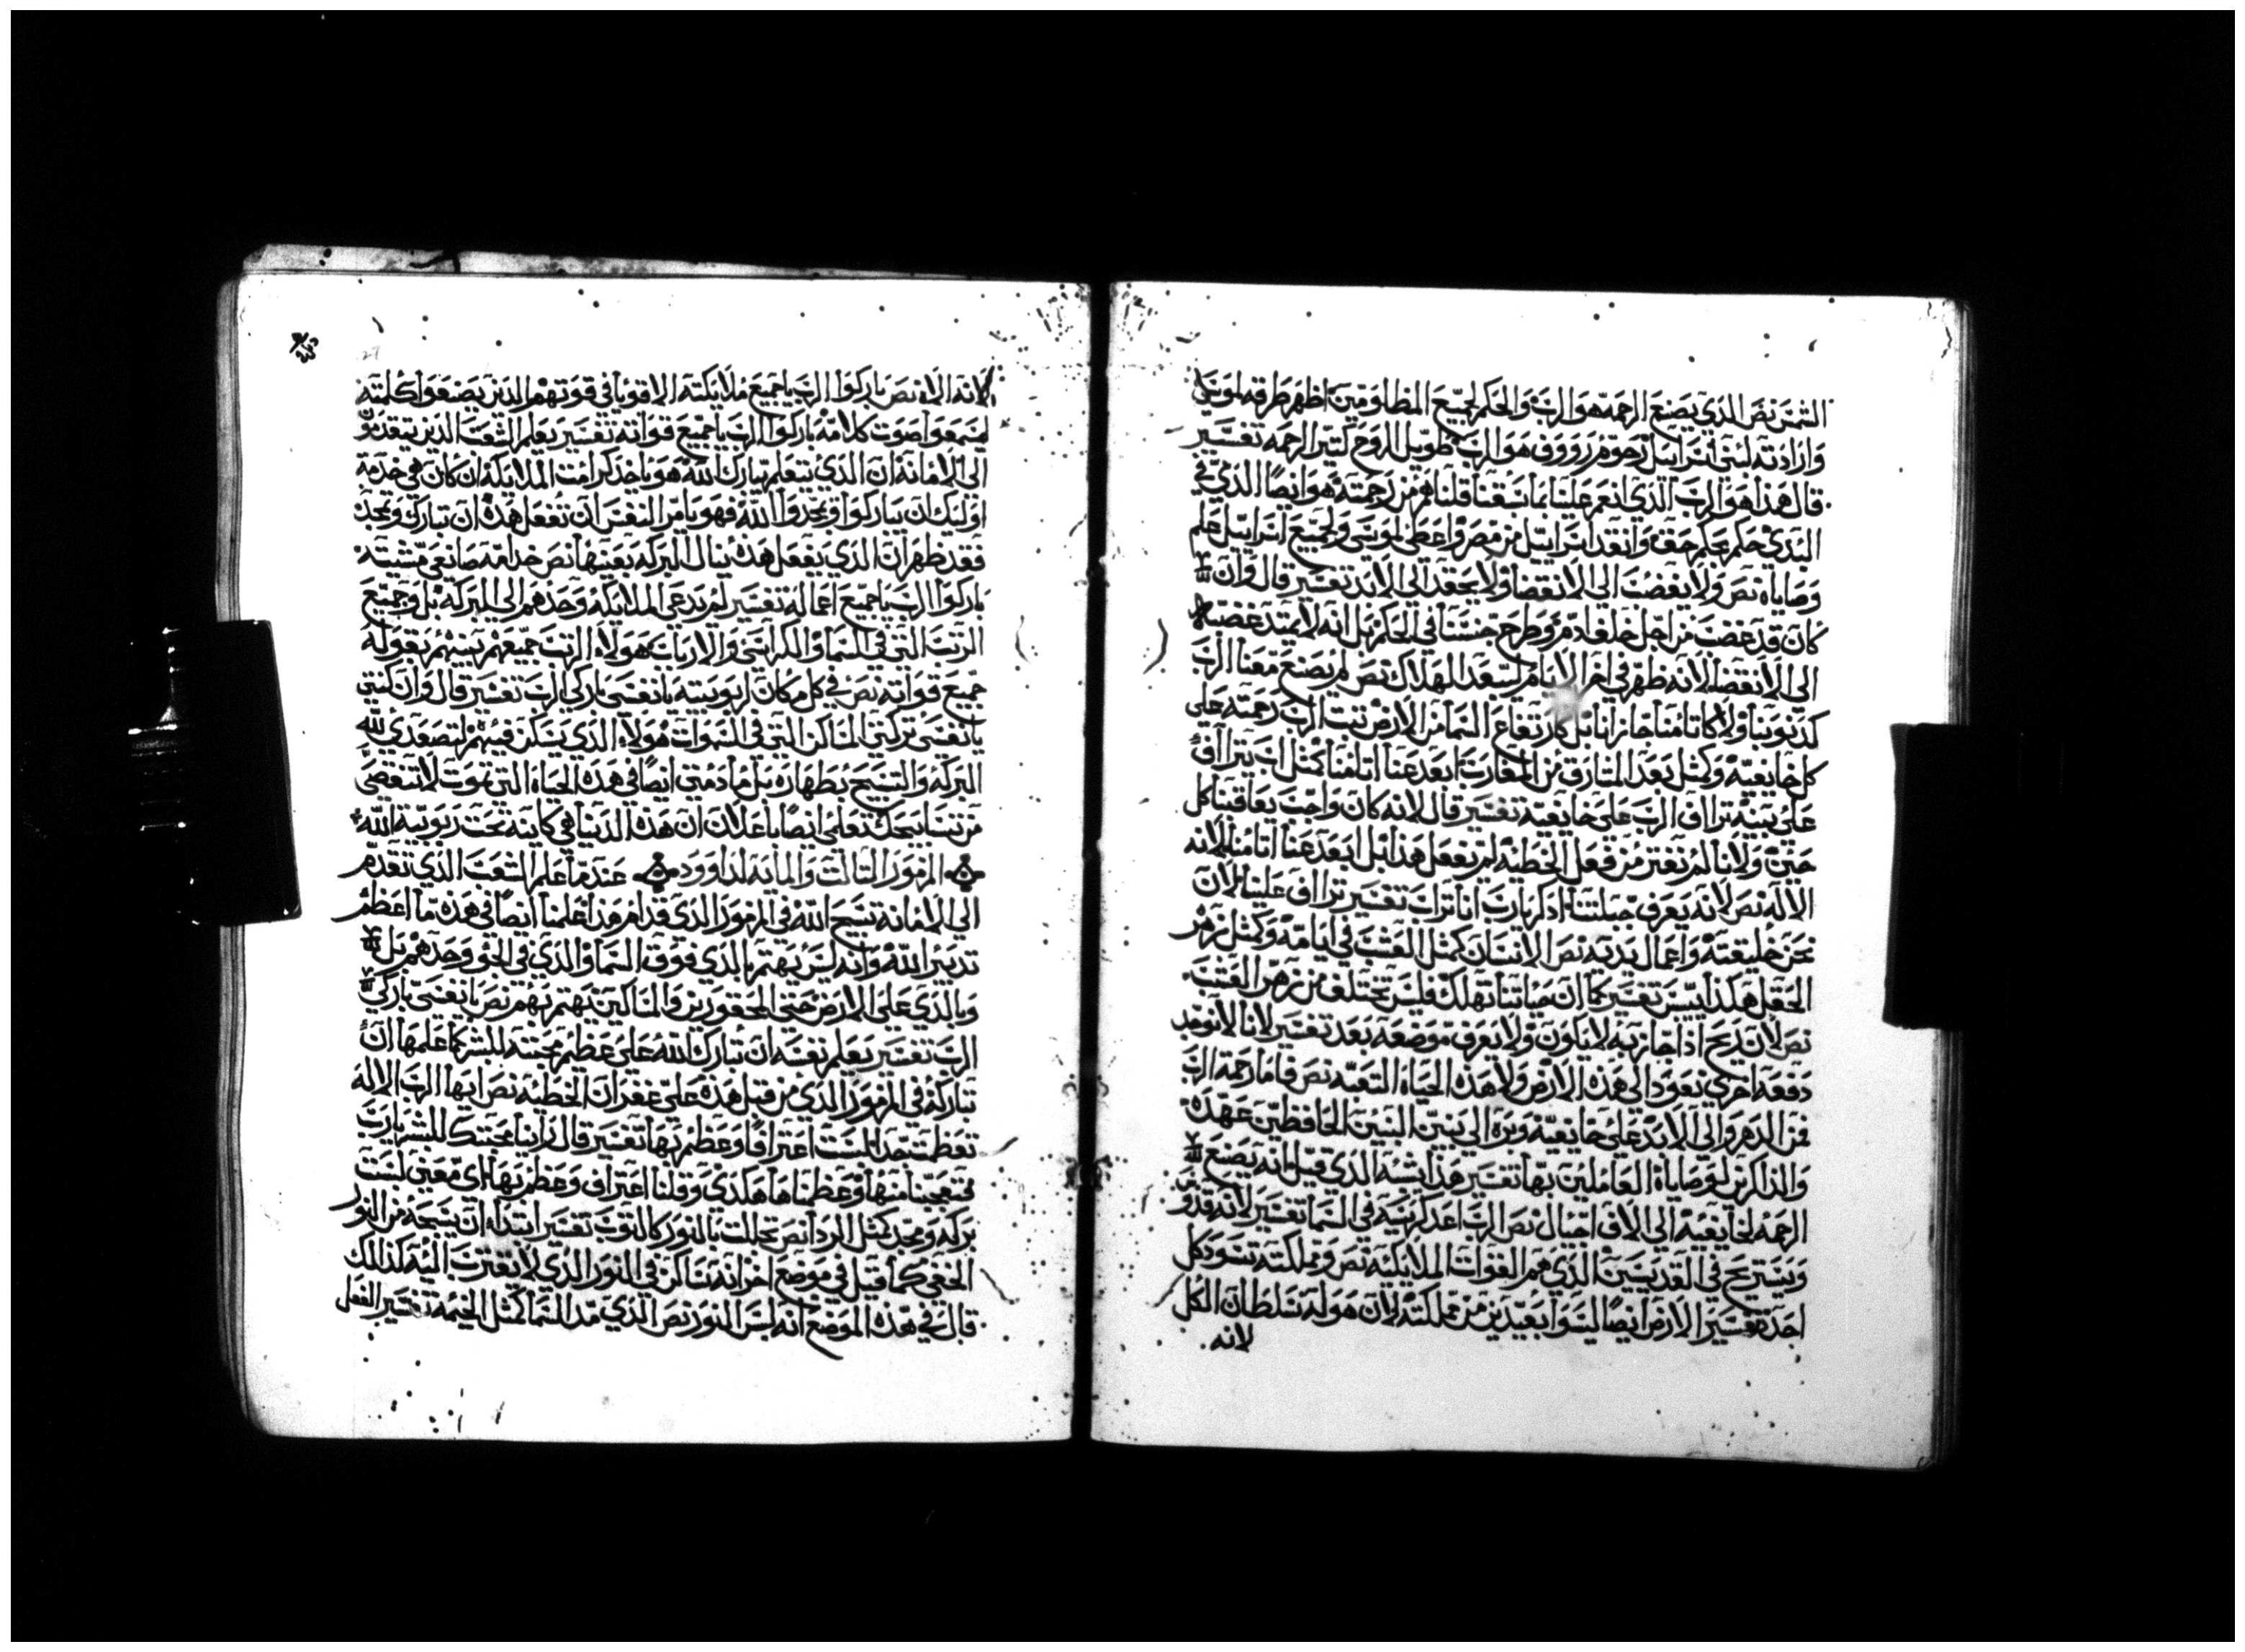 الشمس نص الذي يصنع الرحمه هو الرب والحكم لجميع المظلومين اظهر طرقه لموسى
وارادته لبني اسراييل رحوم رووف هو الرب طويل الروح كتير الرحمه تفسير
قال هذا هو الرب الذي انعم علينا بما سبقنا قلناه من رحمته هو ايضا الذي في
البدي حكم بحكم حق وانقد اسراييل من مصر واعطى لموسى ولجميع اسراييل علم
وصاياه نص ولا يغضب الى الانقضا ولا يحقد الى الابد تفسير قال وان
كان قد غضب من اجل خلفة ادم وطرح جنسنا في الحكم بل انه لا يمتد غضبه
الى الانقضا لانه ظهر في اخر الايام لسعد الهلاك نص لم يصنع معنا الرب
كدنوبنا ولا كاتامنا جازانا بل كارتفاع السما من الارض تبت الرب رحمته على
كل خايفيه وكمثل بعد المشارق من المغارب ابعد عنا اتامنا كمثل اب يتراف
على بنيه تراف الرب على خايفيه تفسير قال لانه كان واجب يعاقبنا كل
حين ولانا لم نفتر من فعل الخطيه لم يفعل هذا بل ابعد عنا اتامنا لانه
الاله نص لانه يعرف جبلتنا ادكر يارب اننا تراب تفسير تراف علينا لان
نحن خليقته واعمال يديه نص الانسان كمثل العشب في ايامه وكمثل زهر
الحقل هكذا ييبس تفسير كما ان حياتنا تهلك فليس تختلف من زهر العشب
نص لان ريح اذا جاز به لا يكون ولا يعرف موضعه بعد تفسير لانا لا نوجد
دفعه اخرى نعود الى هذه الارض ولا هذه الحياه التعبه نص فاما رحمة الرب
فمن الدهر والى الابد على خايفيه وبره الى بنين البنين الحافظين عهده
والذاكرين لوصاياه العاملين بها تفسير هذا يشبه الذي قيل انه يصنع
الرحمه لخايفيه الى الاف اجيال نص الرب اعد كرسيه في السما تفسير لانه قدوس
ويستريح في القديسين الذي هم القوات الملايكيه نص ومملكته تسود كل
احد تفسير الارض ايضا ليسوا بعيدين من مملكته لان هو له سلطان الكل
لانه
لانه الاله نص باركوا الرب يا جميع ملايكته الاقويا في قوتهم الذين يصنعوا كلمته
ليسمعوا صوت كلامه باركوا الرب يا جميع قواته تفسير يعلم الشعب الذين يتقدموا
الى الامانه ان الذي يتعلم يبارك الله هو ياخد كرامت الملايكه ان كان هي خدمة
اوليك ان يباركوا ويمجدوا الله فهو يامر النفس ان تفعل هذه ان تبارك وتمجد
فقد ظهر ان الذي يفعل هذه ينال البركه بعينها نص خدامه صانعي مشيته
باركوا الرب يا جميع اعماله تفسير لم يدعى الملايكه وحدهم الى البركه بل وجميع
الرتب التي في السما والكراسي والارباب هولاء الرتب جميعهم بينهم بقوله
جميع قواته نص في كل مكان ربوبيته يا نفسي باركي الرب تفسير قال وان كنتي
يا نفسي تركتي المساكن التي في السموات هولاء الذي يسكن فيهم لتصعدي لله
البركه والتسبيح بطهاره بل ما دمتي ايضا في هذه الحياه التي تموت لا تنقصي
من تسابيحك تعلمي ايضا يا عدلان ان هذه الدنيا هي كاينه تحت ربوبية الله
المزمور التالت والمايه لداوود عندما علم الشعب الذي تقدم
الى الامانه تسبيح الله في المزمور الذي قدام هذا علمنا ايضا في هذه ما اعظم
تدبير الله وانه ليس يهتم بالذي فوق السما والذي في الجو وحدهم بل
وبالذي على الارض حتى المحقورين والمساكين يهتم بهم نص يا نفسي باركي
الرب تفسير يعلم نفسه ان تبارك الله على عظم محبته للبشر كما علمها ان
تباركه في المزمور الذي من قبل هذه على غفران الخطيه نص ايها الرب الاله
تعظمت جدا لبست اعترافا وعظم بها تفسير قال راينا محبتك للبشر يارب
فتعجبنا منها وعظمناها هكذى وقلنا اعتراف وعظم بها اي معنى لبست
بركه ومجد كمثل الردا نص تجللت بالنور كالتوب تفسير ابتداء ان يسبحه من النور
الخفي كما قيل في موضع اخر انه ساكن في النور الذي لا يقترب اليه كذلك
قال في هذه الموضع انه لبس النور نص الذي مد السما كمثل الخيمه تفسير الفعل